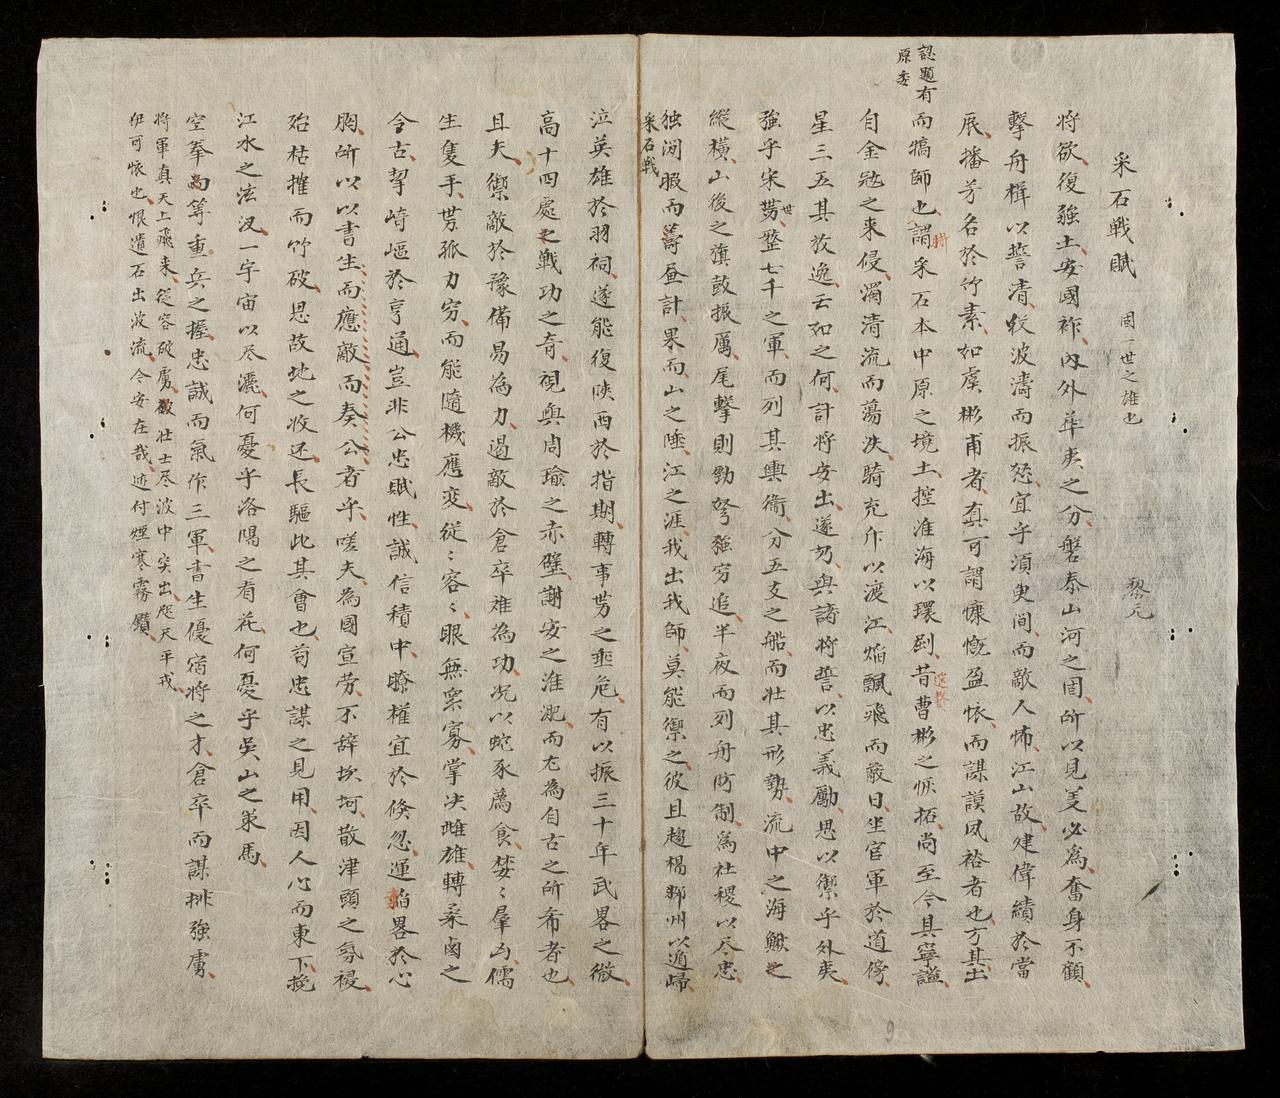 采石戰賦 固一世之雄也 黎元
將欲復疆土安國祚內外華夷之分磐泰山河之固所以見義必為奮身不顧
擊舟楫以誓清鼓波濤而振怒宜乎須臾間而敵人怖江山故建偉績於當
辰播芳名於竹素如虞彬甫者真可謂慷慨盈懷而謀謨夙裕者也方其出
認題有原委
而犒師也謂采石本中原之境土控淮海以環剅昔曹彬之恢拓尚至今其寧謐
自金冦之來侵濁清流而蕩决騎充斥以渡江焰飄飛而蔽日坐官軍於道傍
星三五其放逸云如之何計將安出遂乃與諸將誓以忠義勵思以禦乎外夷
強乎宋勞整七千之軍而列其輿衞分五支之船而壯其形勢流中之海鰍之
縱橫山後之旗鼓振厲尾擊則勁弩強穷追半夜而列舟防制為社稷以尽忠
独閒暇而籌昼計果而山之陲江之涯我出我師莫能禦之彼且趨楊郍州以遁歸
采石戰
泣英雄於羽祠遂能復陝西於指期轉事勞之垂危有以振三十年武畧之微
高十四處之戰功之奇視與周瑜之赤壁謝安之淮淝而尤為自古之所希者也
且夫禦敵於豫備易為力遏敵於倉卒难為功况以蛇豕薦食婪〻羣凶儒
生隻手勞孤力穷而能隨機應変從〻容〻眼無衆寡掌决雌雄轉桑鹵之
令古挐崎嶇於亨通豈非公忠賦性誠信積中瞭權宜於倏忽運韜畧於心
胸所以以書生而應敵而奏公者乎嗟夫為國宣劳不辞坎坷散津頭之氛祲
殆枯摧而竹破思故地之收还長驅此其會也苟忠謀之見用因人心而東下挽
江水之泫汊一宇宙以尽灑何憂乎洛陽之看花何憂乎吳山之策馬
空拳高筭重兵之握忠誠而氣作三軍書生優宿將之才倉卒而謀排強虜
將軍真天上飛来從容破虜敵壯士尽波中突出咫天平戎
伊可懷也恨遺石出波流今安在哉迹付煙寒霧鎖